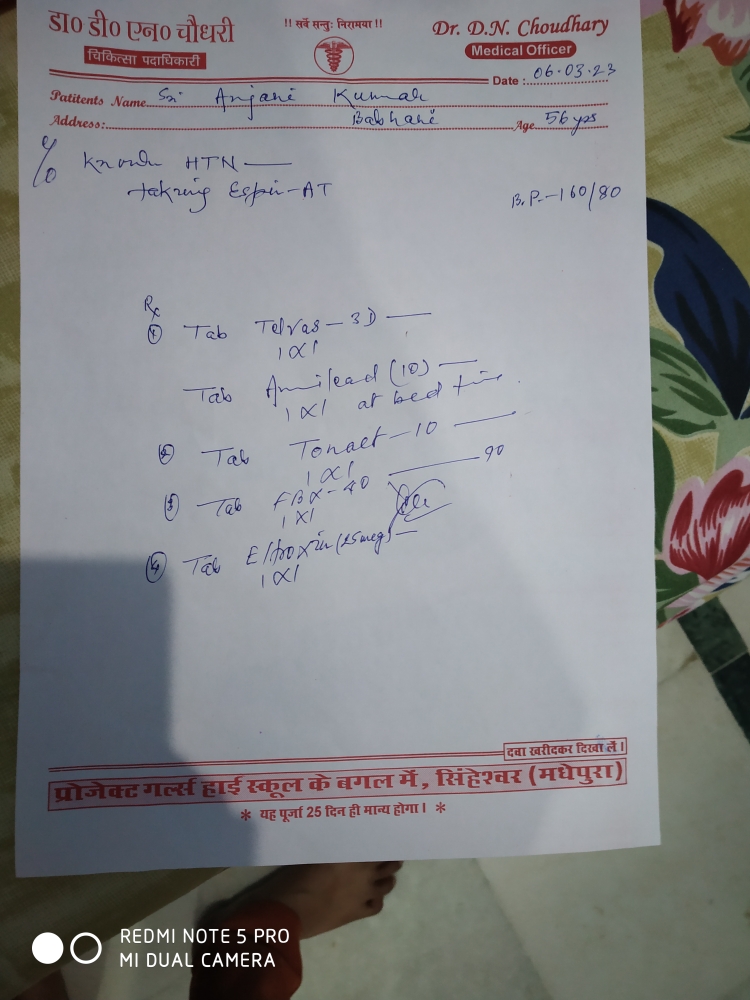 डा० डी० एन० चौधरी
!! सर्वे सन्तुः निरामया !!
Dr. D.N. Choudhary
चिकित्सा पदाधिकारी
Medical Officer
Date : 06.03.23
Patitents Name Sri Anjani Kumar
Address: Babhani Age 56 yrs
c/o Known HTN
taking Espin-AT
B.P.-160/80
Rx
(1) Tab Telvas-3D
1X1
Tab Amilead (10)
1X1 at bed time
(2) Tab Tonact-10
1X1
90
(3) Tab FBX-40
1X1
(4) Tab Eltroxin (25mcg)
1X1
दवा खरीदकर दिखा लें।
प्रोजेक्ट गर्ल्स हाई स्कूल के बगल में, सिंहेश्वर (मधेपुरा)
* यह पूर्जा 25 दिन ही मान्य होगा। *
REDMI NOTE 5 PRO
MI DUAL CAMERA